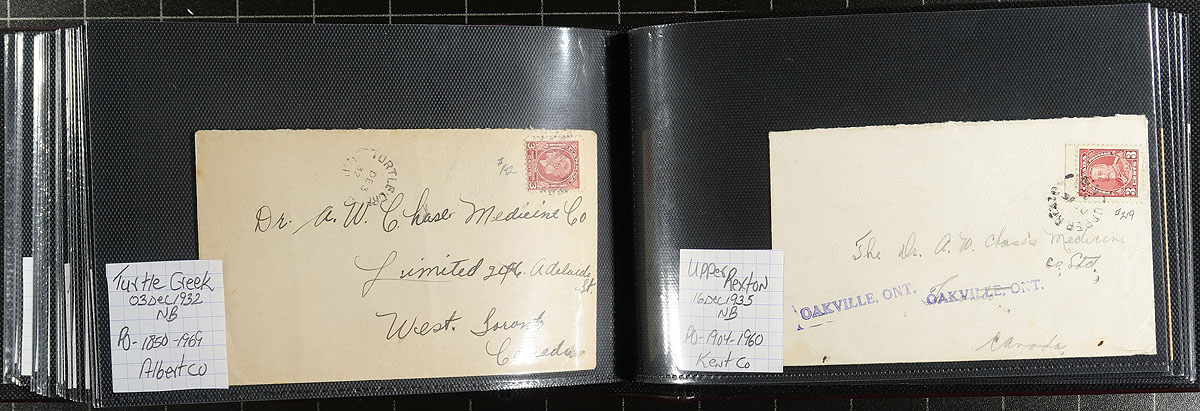 TURTLE CR
DE 3
32
$192
Dr. A. W. Chase Medicine Co
Limited Adelaide
St.
West. Toronto
Canada
Turtle Creek
03 Dec 1932
NB
PO - 1850-1969
Albert Co
3 3
UPPER REXTON
$219
The Dr. A. W. Chase's Medicine
Co. Ltd.
OAKVILLE, ONT. OAKVILLE, ONT.
Canada
Upper
Rexton
16 Dec 1935
NB
PO - 1904-1960
Kent Co